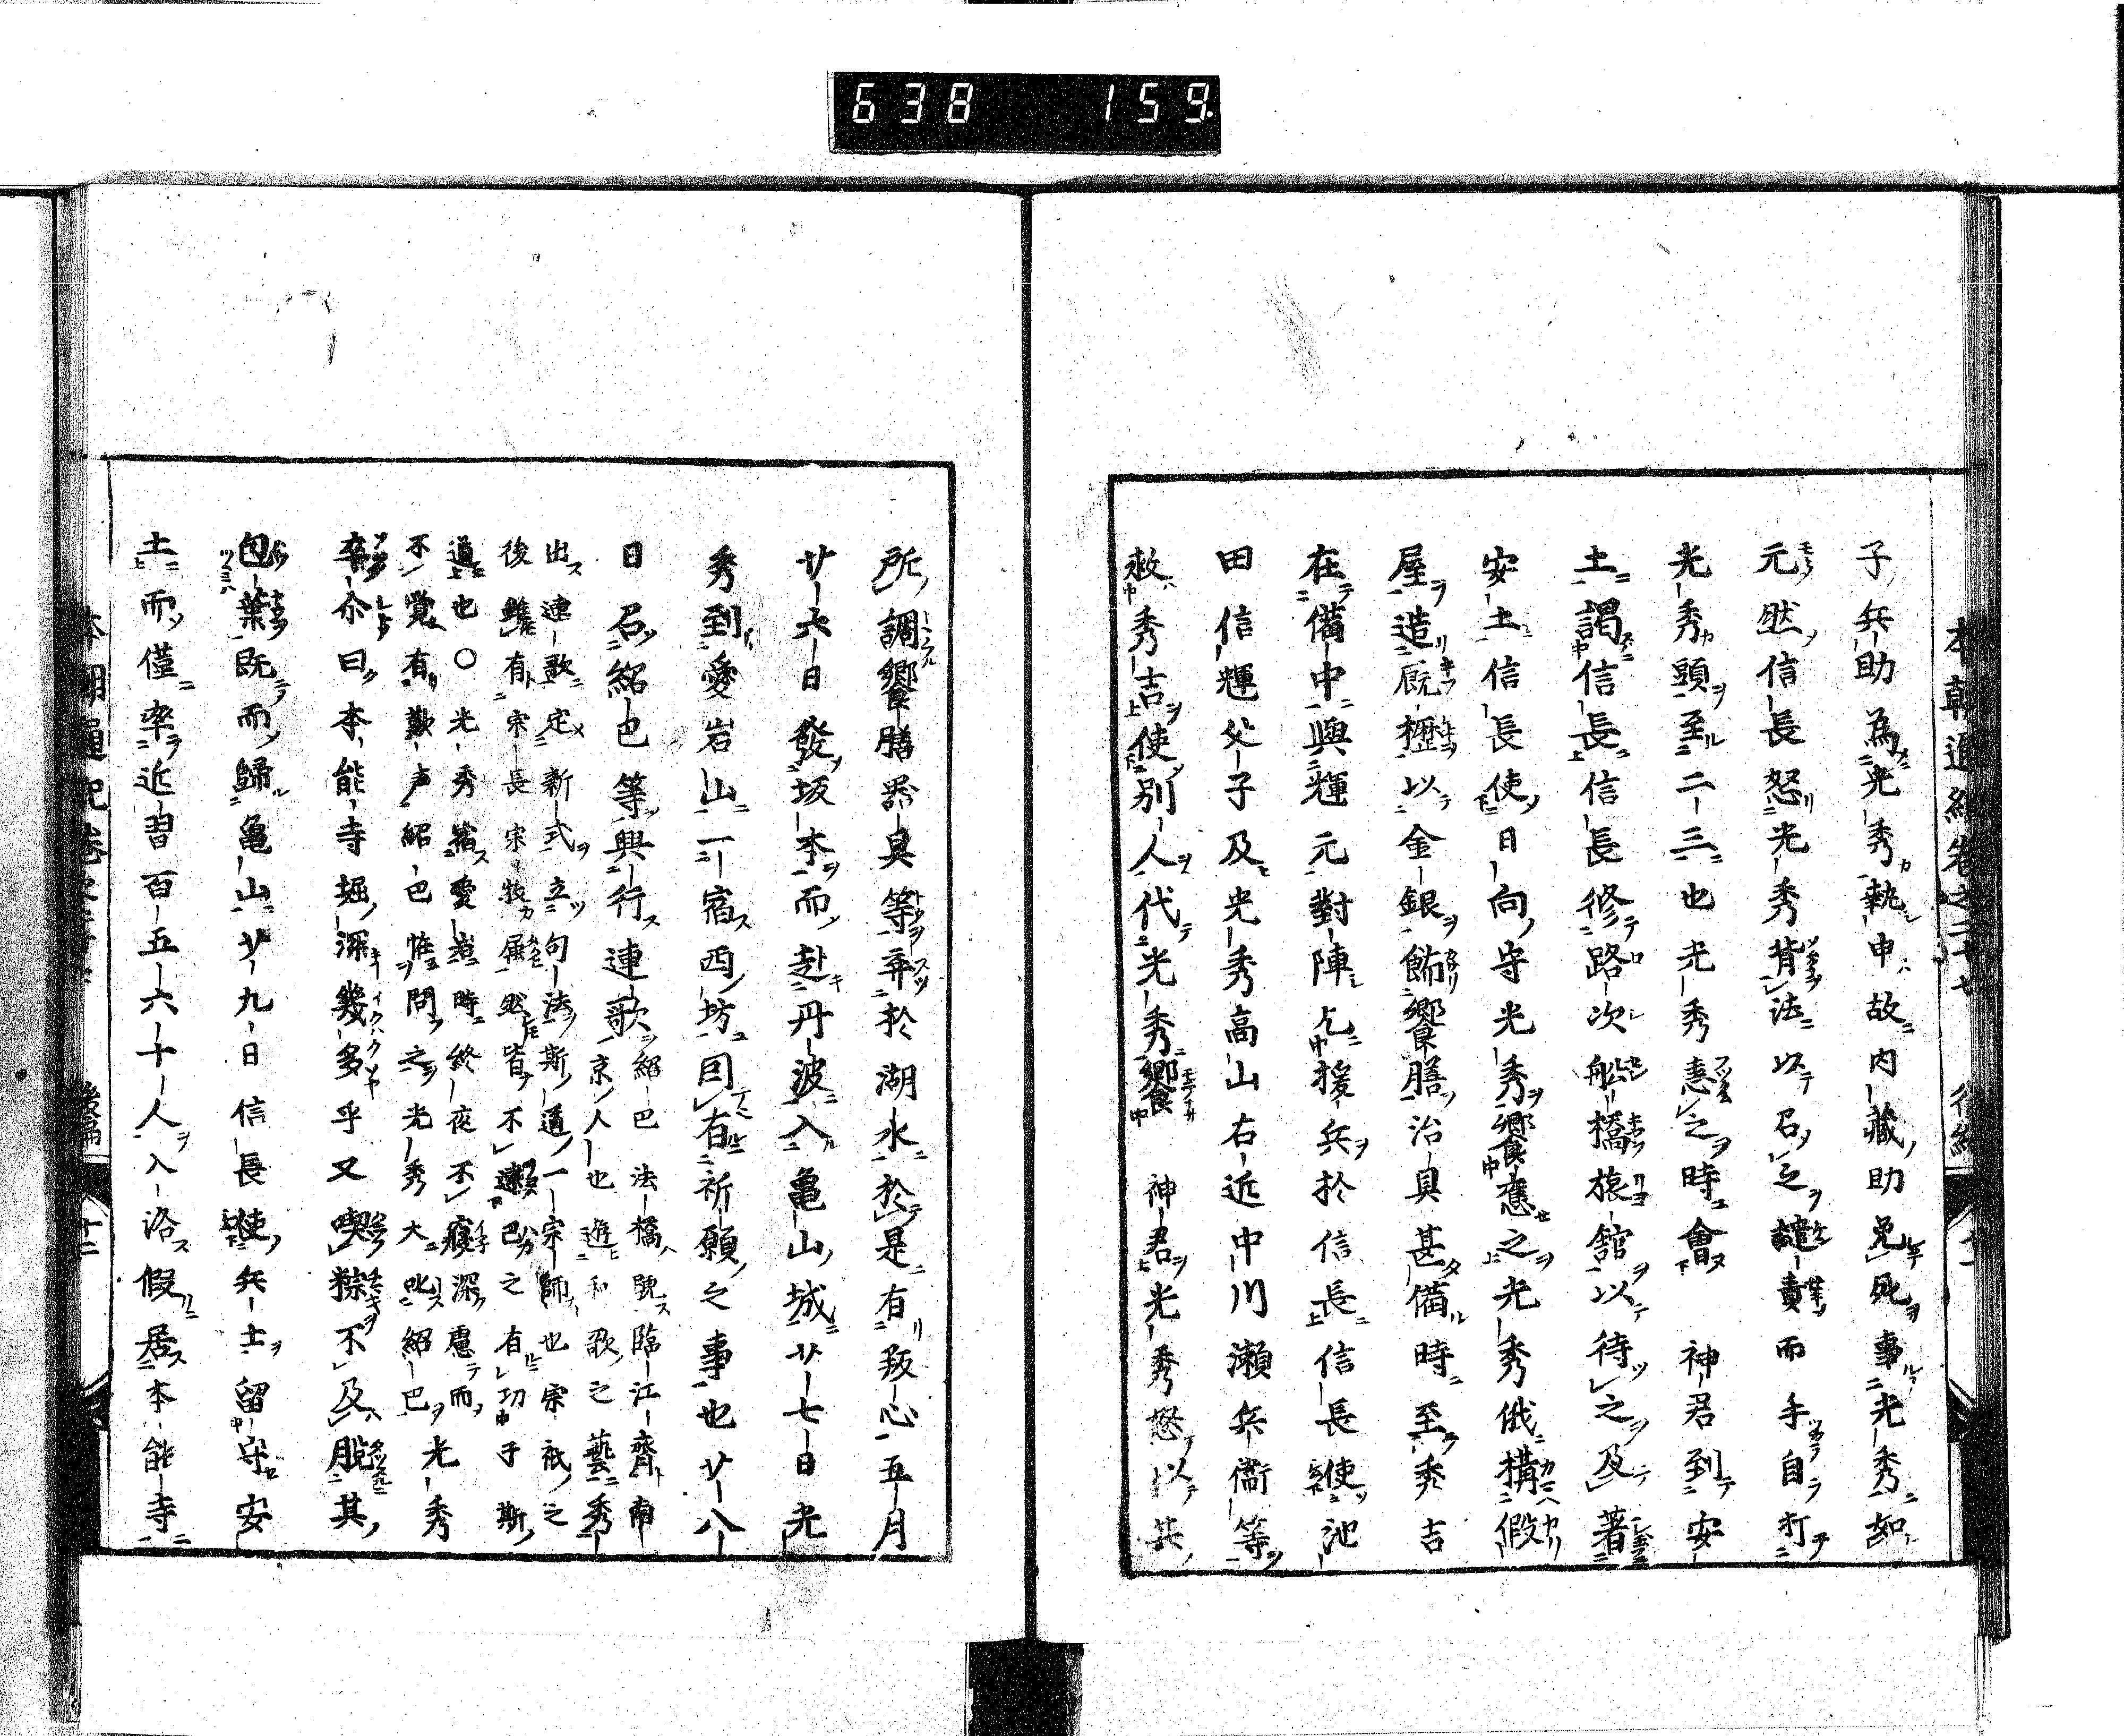 638 159
子兵助為光秀執申故内藏助免死事光秀如
元然信長怒光秀背法以召之譴責而手自打
光秀頭至二三也光秀恚之時會 神君到安
土謁信長信長修路次船橋旅舘以待之及著
安土信長使日向守光秀饗應之光秀俄構假
屋造厩櫪以金銀飾饗膳治具甚備時至秀吉
在備中與輝元對陣乞援兵於信長信長使池
田信輝父子及光秀高山右近中川瀬兵衞等
救秀吉使別人代光秀饗 神君光秀怒以其
所調饗膳器具等弃於湖水於是有叛心五月
廿六日發坂本而赴丹波入亀山城廿七日光
秀到愛岩山一宿西坊因有祈願之事也廿八
日召紹巴等興行連歌
紹巴法橋號臨江齋南
京人也進和歌之藝秀
出連歌定新式立句法斯道一宗師也宗祇之
後雖有宗長宗牧屬然皆不逮巴之有功于斯
道也○光秀宿愛岩時終夜不寢深慮而
不覺有歎声紹巴惟問之光秀大叱紹巴光秀
卒尒曰本能寺堀深幾多乎又喫粽不及脱其
包葉既而歸亀山廿九日信長使兵士留守安
土而僅率近習百五六十人入洛假居本能寺
十二